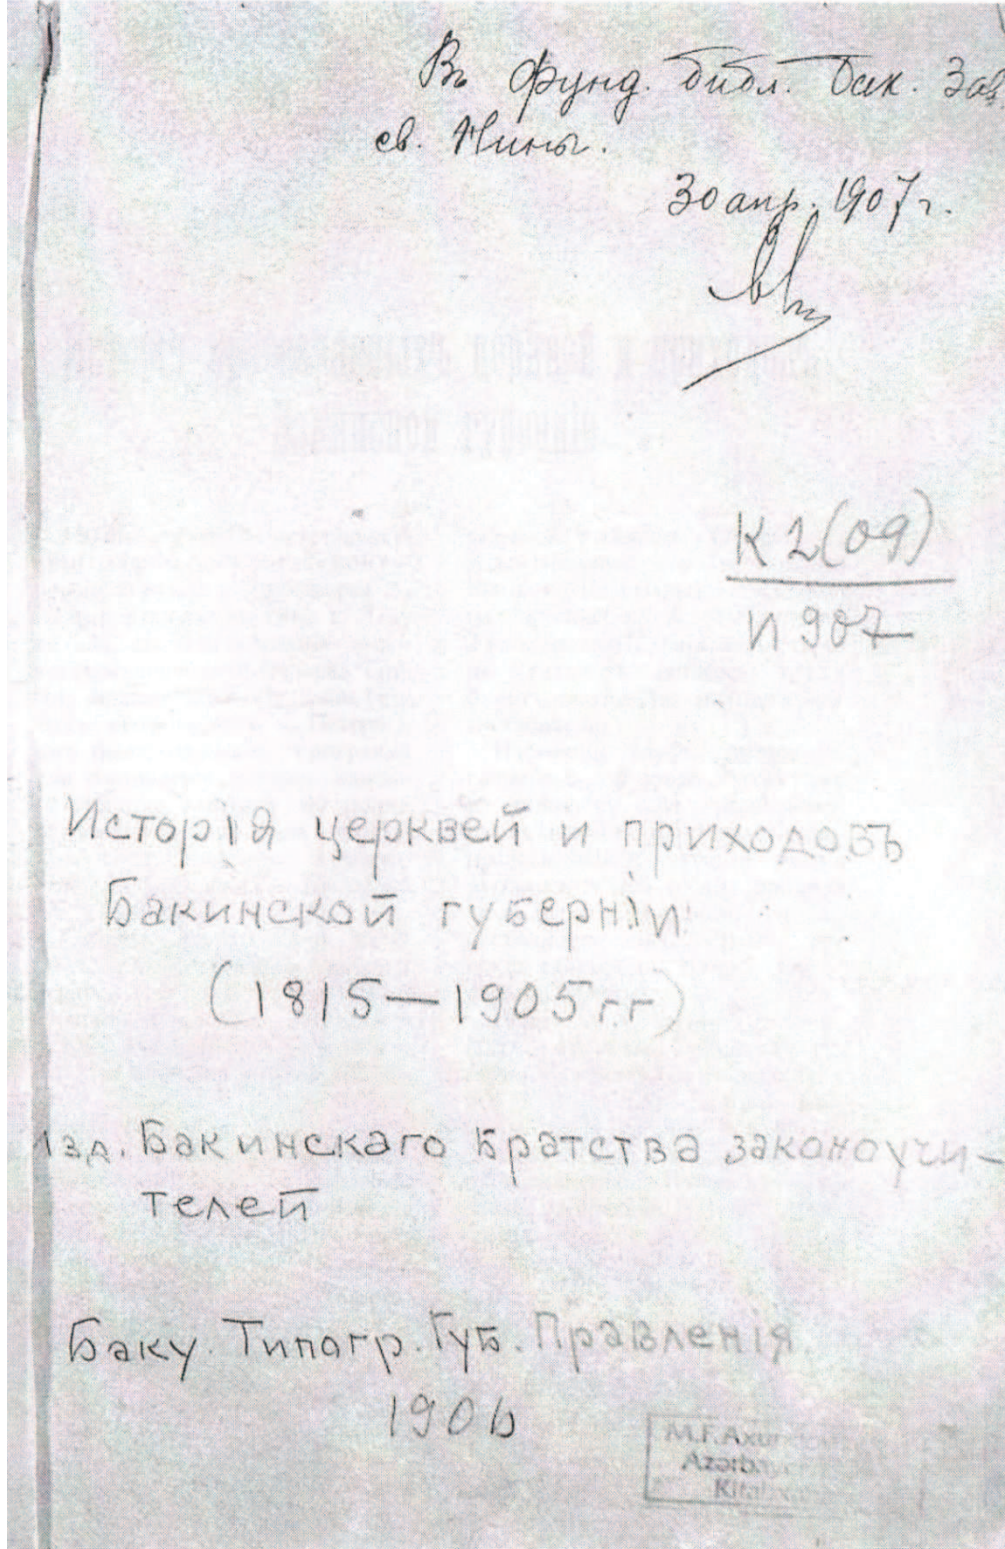 Въ фунд. библ. Бак. Зав
св. Нины.
30 апр. 1907 г.
К 2(09)
И 907
Исторія церквей и приходовъ
Бакинской губерніи
(1815—1905 г.г)
Изд. Бакинскаго Братства законоучи-
телей
Баку. Типогр. Губ. Правленія.
1906
M.F.Axundov
Azərbay
Kitabxa